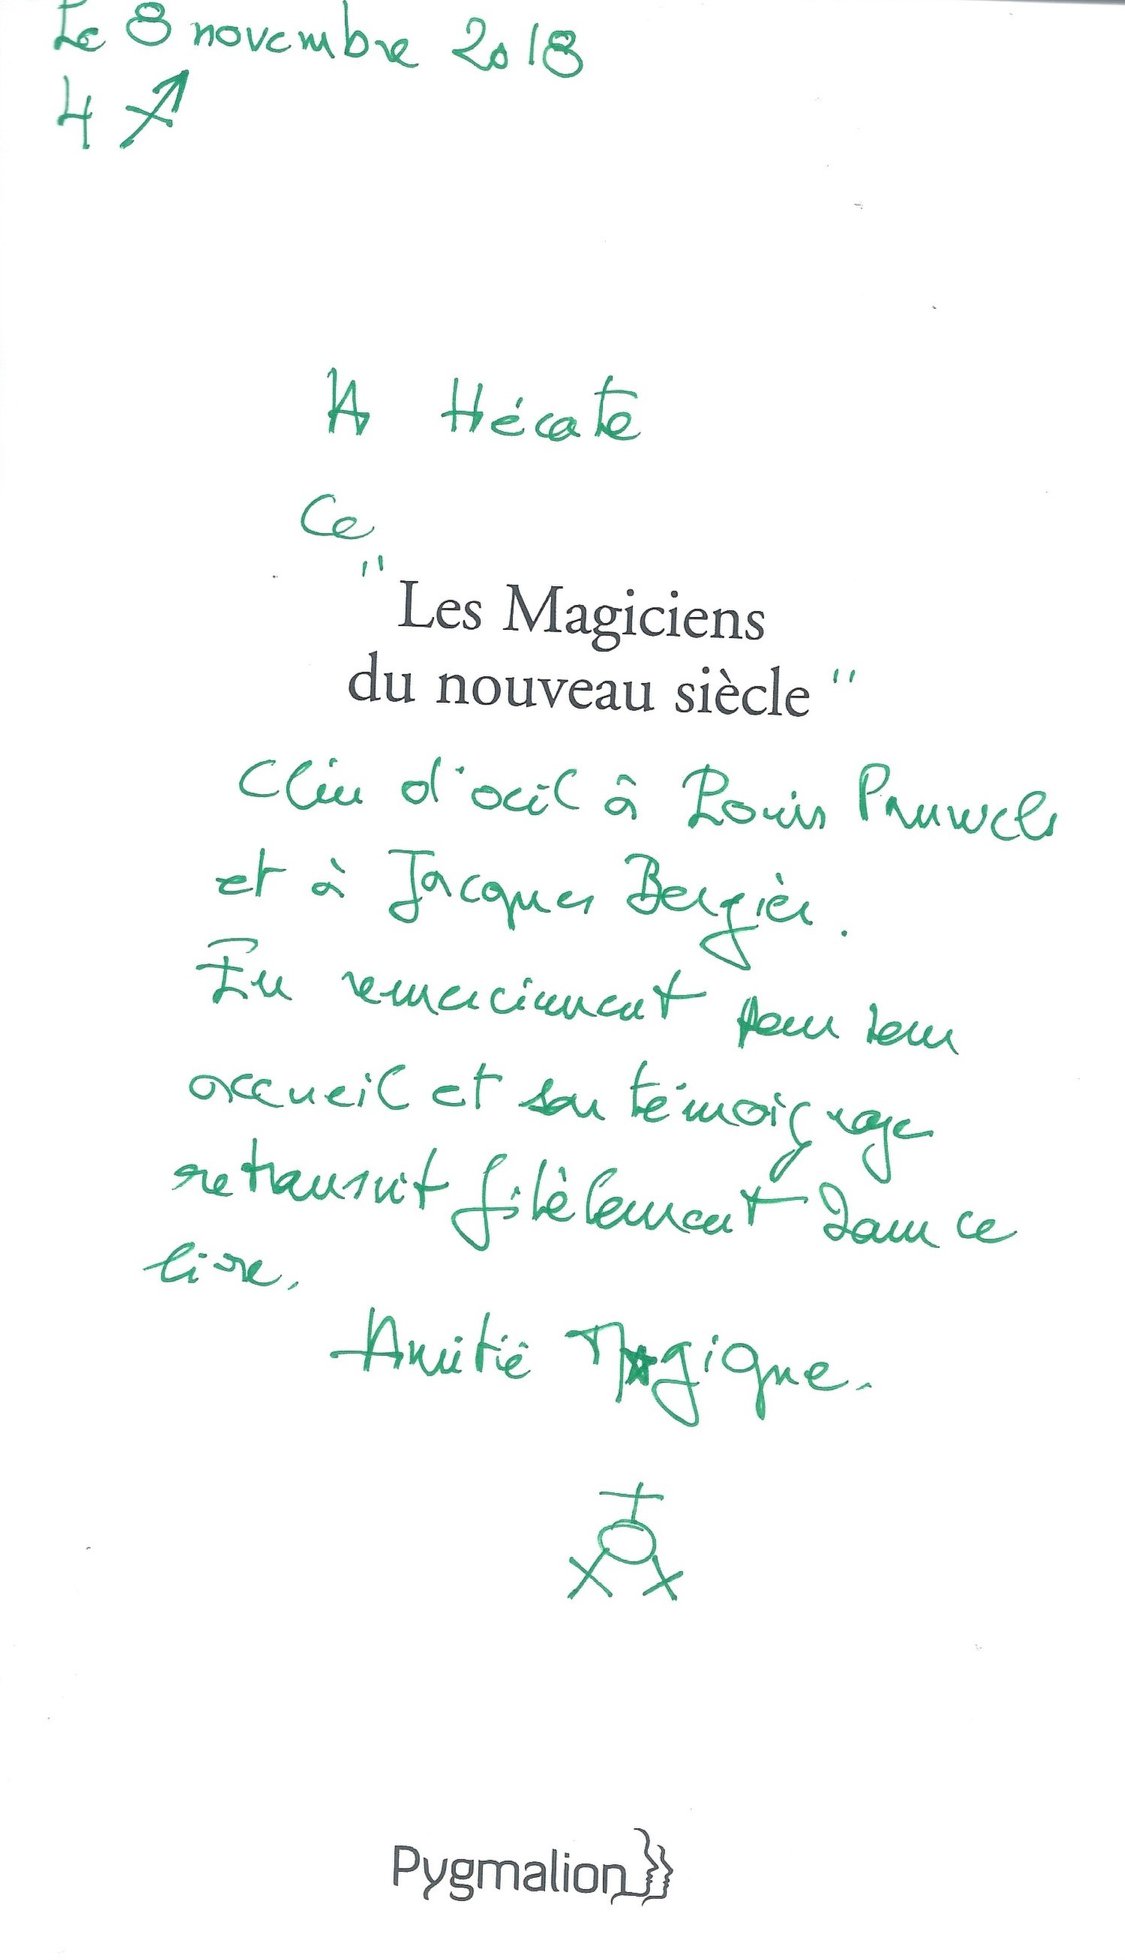 Le 8 novembre 2018
4 ♐
A Hécate
Ce
" Les Magiciens
du nouveau siècle "
Clin d'oeil à Louis Pauwels
et à Jacques Bergier.
En remerciement pour son
accueil et son témoignage
retransmit fidèlement dans ce
livre.
Amitié Magique.
Pygmalion